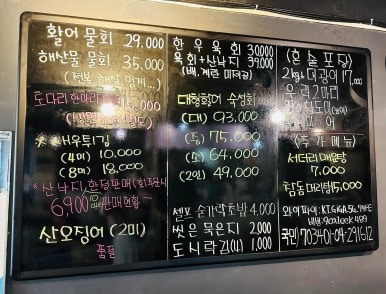 활어물회 29.000
해산물 물회 35.000
(전복, 해삼, 멍게..)
도다리한마리 15.000
※ 새우튀김
(4미) 10.000
(8미) 18.000
※산낙지, 한정판매
6,900
산오징어 (2미)
품절
한우육회 30.000
육회+산낙지 39.000
(배,계란 미제공)
대형활어 숙성회
(대) 93.000
(중) 75.000
(소) 64.000
(2인) 49.000
셀프 숟가락초밥 4.000
씻은묵은지 2.000
도시락김(1) 1.000
(혼술포장)
17,000
우럭2마리
(추가메뉴)
서더리매운탕
7,000
참돔머리탕 15,000
와이파이:
국민) 703401-04-291612